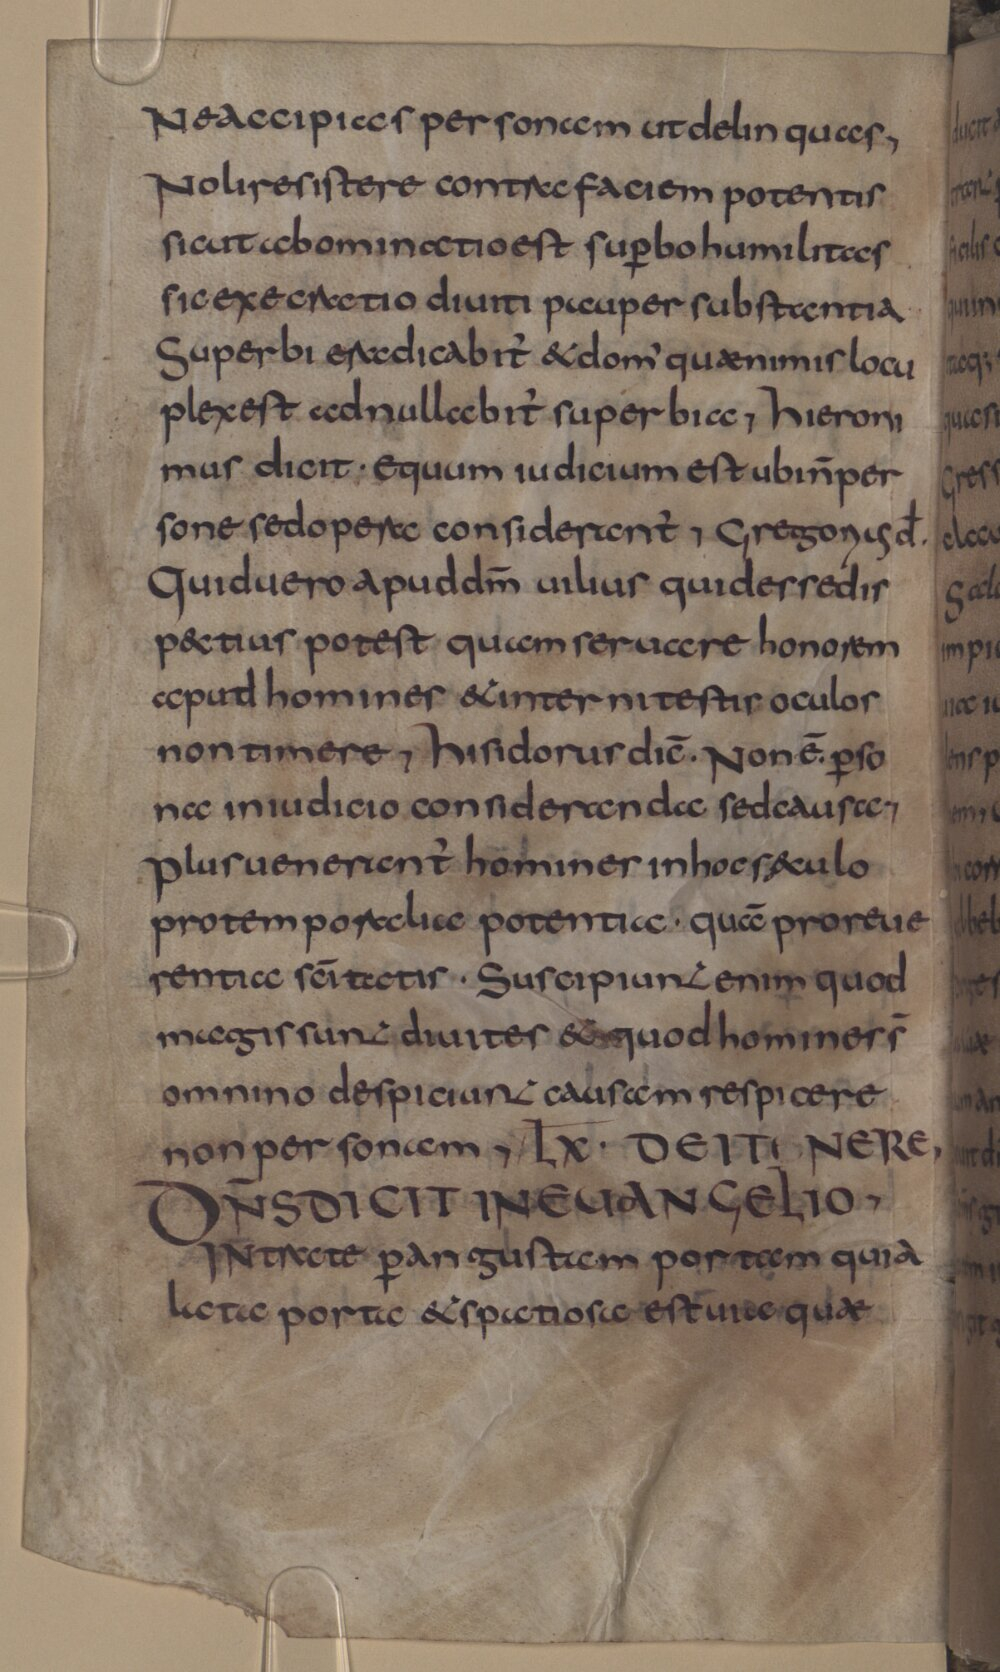 Ne accipias personam ut delinquas,
Noli resistere contra faciem potentis
sicut abominatio est sup̄bo humilitas
sic execratio diviti pauper substantia
Superbi eradicabit᷑ & dom᾽ quæ nimis locu
plex est adnullabit᷑ superbia, hieroni
mus dicit · Equum iudicium est ubi n̄ per
sone sed opera considerant᷑, Gregorius d̄.
Quid vero apud dm̄ vilius quid est sedis
pectius potest quam servare honorem
apud homines & interni testis oculos
non timere, hisidorus dic̄. Non ē. p̄so
na in iudicio consideranda sed causa,
Plus venerant᷑ homines in hoc sæculo
pro temporalia potentia · quā pro reve
rentia sc̄itatis · Suscipiunt enim quod
magis sunt divites & quod homines s̄
omnino despiciunt causam respicere
non personam, LX · DE ITINERE,
DN̄S DICIT IN EUANGELIO,
INtrate p̄ angustam portam quia
lata porta & spatiosa est via quæ